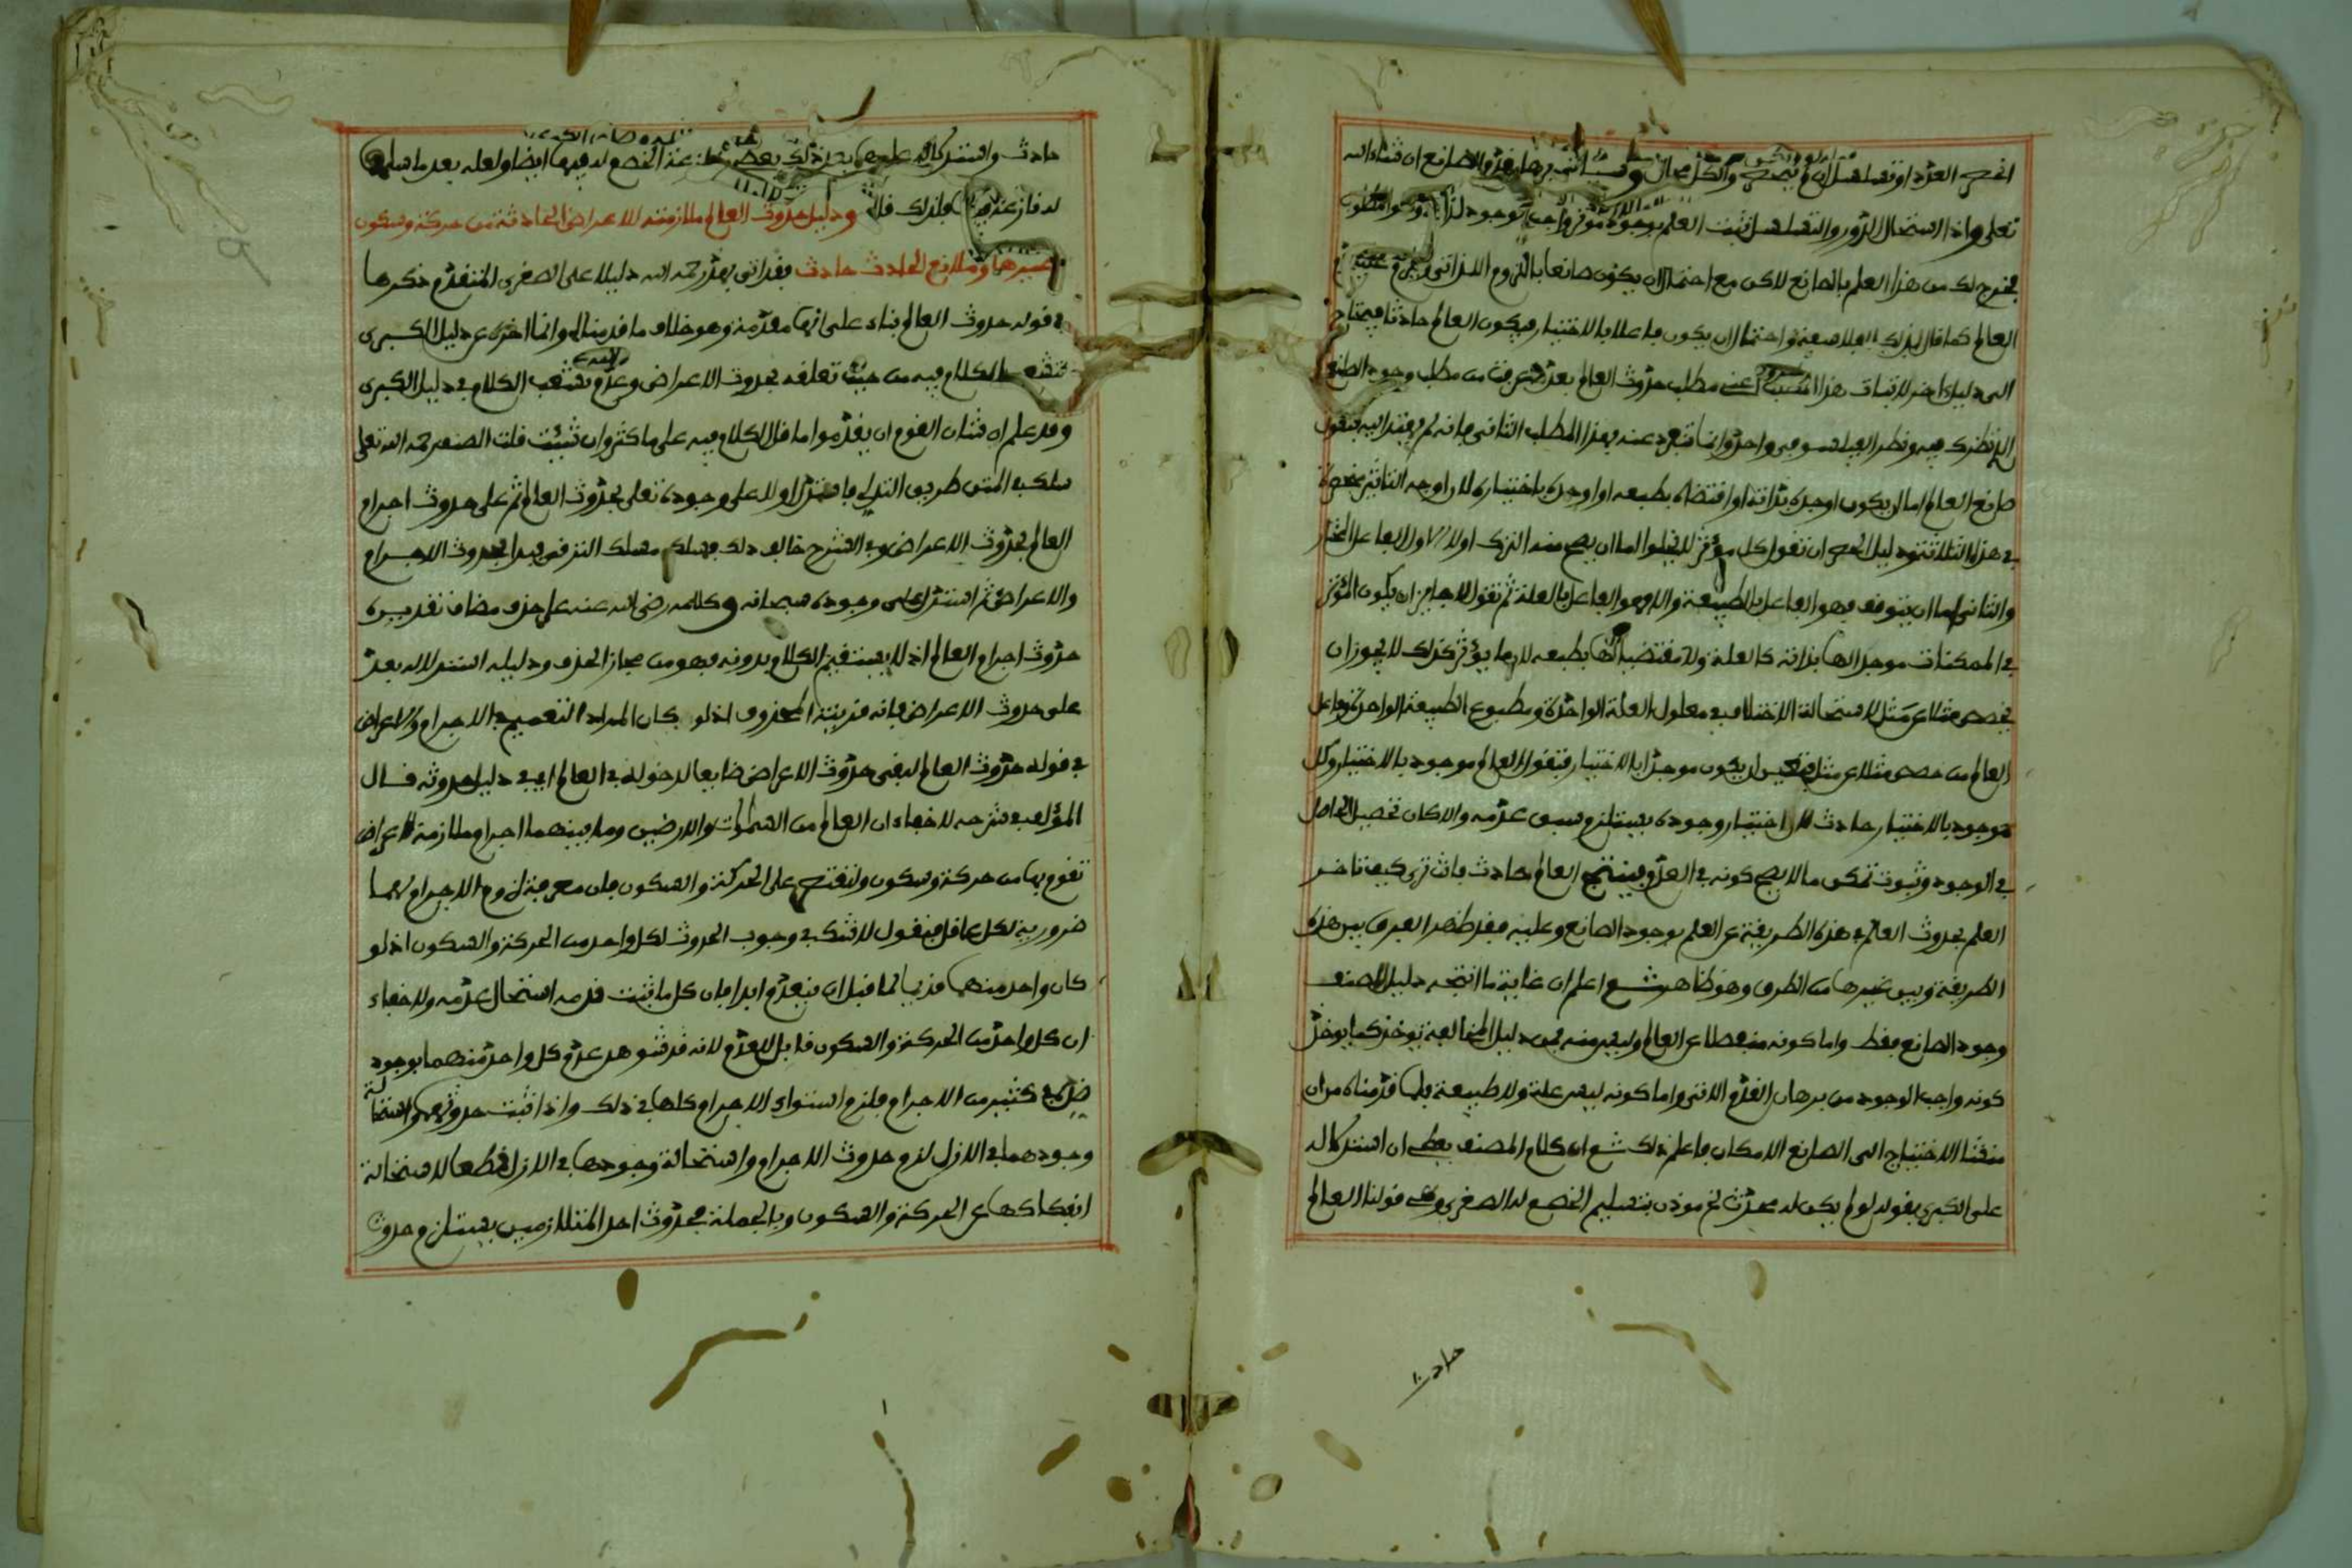 انحصر العدد او تسلسل ان لم ينحصر والكل محال وسياتي برهان قدم الصانع ان شاء الله
تعلى واذا استحال الدور والتسلسل ثبت العلم بوجود موثر واجب الوجود لذاته وهو المطلوب
فخرج لك من هذا العلم بالصانع لاكن مع احتمال ان يكون صانعا باللزوم الذاتي
العالم كما قال بذلك الفلاسفة واحتمال ان يكون فاعلا بالاختيار فيكون العالم حادثا فيحتاج
الى دليل اخر لاثبات هذا المطلب اعني مطلب حدوث العالم بعد معرفتك من مطلب وجود الصانع
الذي نظرك فيه ونظر الفيلسوفي واحد وانما تنفرد عنه بهذا المطلب الثاني فانه لم يهتد اليه فتقول
صانع العالم اما ان يكون اوجده بذاته او اقتضاه بطبعه او اوجده باختياره لان اوجه التاثير منحصرة
في هذه الثلاثة ودليل الحصر ان تقول كل موثر لا يخلوا اما ان يصح منه الترك او لا الاول الفاعل المختار
والثاني اما ان يتوقف فهو الفاعل بالطبيعة والا فهو الفاعل بالعلة ثم تقول لا جايز ان يكون الموثر
في الممكنات موجدا لها بذاته كالعلة ولا مقتضيا لها بطبعه لان ما يوثر كذلك لا يجوز ان
يخصص مثلا عن مثل لاستحالة الاختلاف في معلول العلة الواحدة ومطبوع الطبيعة الواحدة وفاعل
العالم من خصص مثلا عن مثل فتعين ان يكون موجدا بالاختيار فتقول العالم موجود بالاختيار وكل
موجود بالاختيار حادث لان اختيار وجوده يستلزم سبق عدمه والا كان تحصيل الحاصل
في الوجود وثبوت تمكن ما لا يصح كونه في العدم فينتج العالم حادث فانت ترى كيف تاخر
العلم بحدوث العالم في هذه الطريقة عن العلم بوجود الصانع وعليه فقد ظهر الفرق بين هذه
الطريقة وبين غيرها من الطرق وهو ظاهر ثم اعلم ان غاية ما انتجه دليل المصنف
وجود الصانع فقط واما كونه منفصلا عن العالم وليس منه فمن دليل المخالفة يوخذ كما يوخذ
كونه واجب الوجود من برهان القدم الاتي واما كونه ليس علة ولا طبيعة فلما قدمناه من ان
منشا الاحتياج الى الصانع الامكان فاعلم ذلك ثم ان كلام المصنف يعطي ان استدلاله
على الكبرى بقوله لو لم يكن له محدث الخ موذن بتسليم الخصم له الصغرى وهي قولنا العالم
حادث
حادث واستدلاله عليها بعد ذلك عند الخصم له فيها ايضا ولعله بعد ما سلمها
له نازعه فيها فلذلك قال ودليل حدوث العالم ملازمته للاعراض الحادثة من حركة وسكون
وغيرهما وملازم الحادث حادث فقد اتى بعد رحمه الله دليلا على الصغرى المتقدم ذكرها
في قوله حدوث العالم بناء على انها مقدمة وهو خلاف ما قدمناه وانما اخره عن دليل الكبرى
لتشعب الكلام فيه من حيث تعلقه بحدوث الاعراض وعدم تشعب الكلام في دليل الكبرى
وقد علم ان شان القوم ان يقدموا ما قل الكلام فيه على ما كثر وان شئت قلت المصنف رحمه الله تعلى
سلك في المتن طريق التدلي فاستدل اولا على وجوده تعلى بحدوث العالم ثم على حدوث اجرام
العالم بحدوث الاعراض وفي الشرح خالف ذلك فسلك مسلك الترقي فبدا بحدوث الاجرام
والاعراض ثم استدل على وجوده سبحانه وكلامه رضي الله عنه على حذف مضاف تقديره
حدوث اجرام العالم اذ لا يستقيم الكلام بدونه فهو من مجاز الحذف ودليله استدلاله بعد
على حدوث الاعراض فانه قرينة المحذوف اذ لو كان المراد التعميم في الاجرام والاعراض
في قوله حدوث العالم لبقى حدوث الاعراض ضايعا لدخوله في العالم اي في دليل حدوثه قال
المؤلف في شرحه لا خفاء ان العالم من السموات والارضين وما بينهما اجرام ملازمة لاعراض
تقوم بها من حركة وسكون ولنقتصر على الحركة والسكون فان معرفة لزوم الاجرام لهما
ضرورية لكل عاقل فنقول لا شك في وجوب الحدوث لكل واحد من الحركة والسكون اذ لو
كان واحد منهما قديما لما قبل ان ينعدم ابدا فان كل ما ثبت قدمه استحال عدمه ولا خفاء
ان كل واحد من الحركة والسكون قابل للعدم لانه قد شوهد عدم كل واحد منهما بوجود
ضده في كثير من الاجرام فلزم استواء الاجرام كلها في ذلك واذا ثبت حدوثهما واستحالة
وجودهما في الازل لزم حدوث الاجرام واستحالة وجودها في الازل قطعا لاستحالة
انفكاكها عن الحركة والسكون وبالجملة فحدوث احد المتلازمين يستلزم حدوث